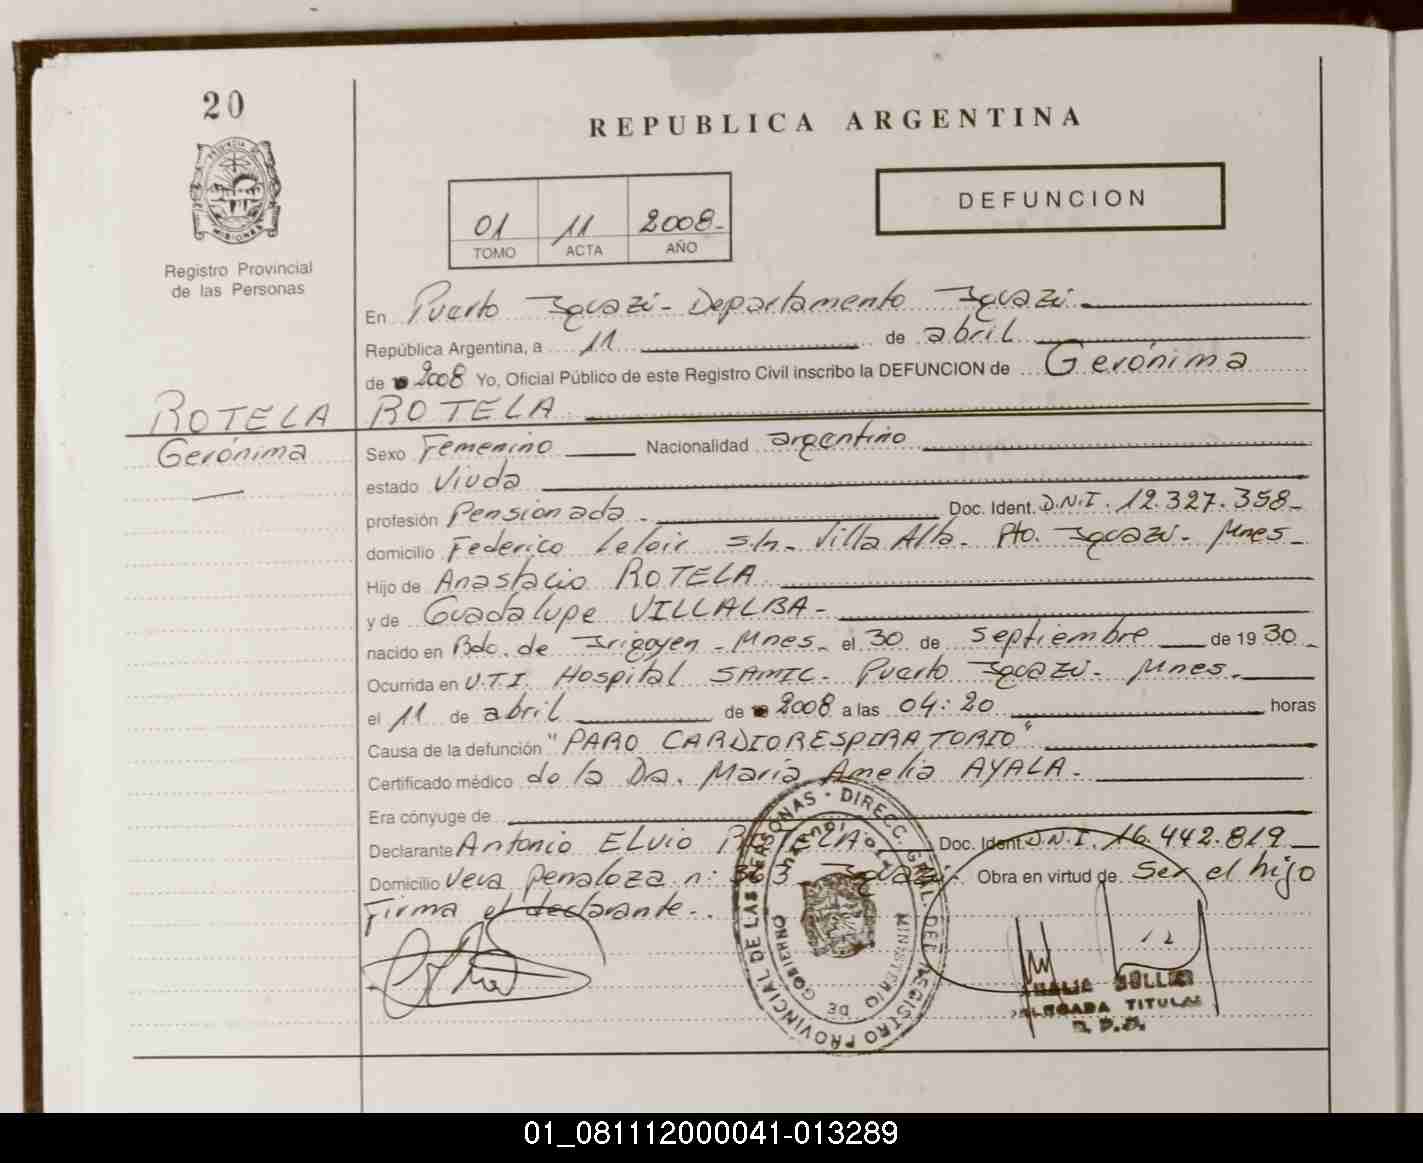 20
PROVINCIA DE
MISIONES
Registro Provincial
de las Personas
REPUBLICA ARGENTINA
DEFUNCION
01 11 2008-
TOMO ACTA AÑO
En Puerto Iguazú - Departamento Iguazú
República Argentina, a 11 de abril
de 2008 Yo, Oficial Público de este Registro Civil inscribo la DEFUNCION de Gerónima
ROTELA ROTELA
Gerónima
Sexo Femenino Nacionalidad argentino
estado Viuda
profesión Pensionada. Doc. Ident. D.N.I. 12.327.358-
domicilio Federico Leloir s/n- Villa Alta- Pto. Iguazú- Mnes-
Hijo de Anastacio ROTELA
y de Guadalupe VILLALBA-
nacido en Bdo. de Irigoyen - Mnes- el 30 de septiembre de 1930-
Ocurrida en U.T.I. Hospital SAMIC- Puerto Iguazú- Mnes.
el 11 de abril de 2008 a las 04:20 horas
Causa de la defunción "PARO CARDIORESPIRATORIO"
Certificado médico de la Dra. María Amelia AYALA-
Era cónyuge de
Declarante Antonio ELVIO ROTELA Doc. Ident. D.N.I. 16.442.819
Domicilio Peñaloza n: Iguazú- Obra en virtud de Ser el hijo
Firma el declarante-
DIRECC. GRAL. DEL REGISTRO PROVINCIAL DE LAS PERSONAS
MINISTERIO DE GOBIERNO
PTO. IGUAZU
DELEGADA TITULAR
01_081112000041-013289